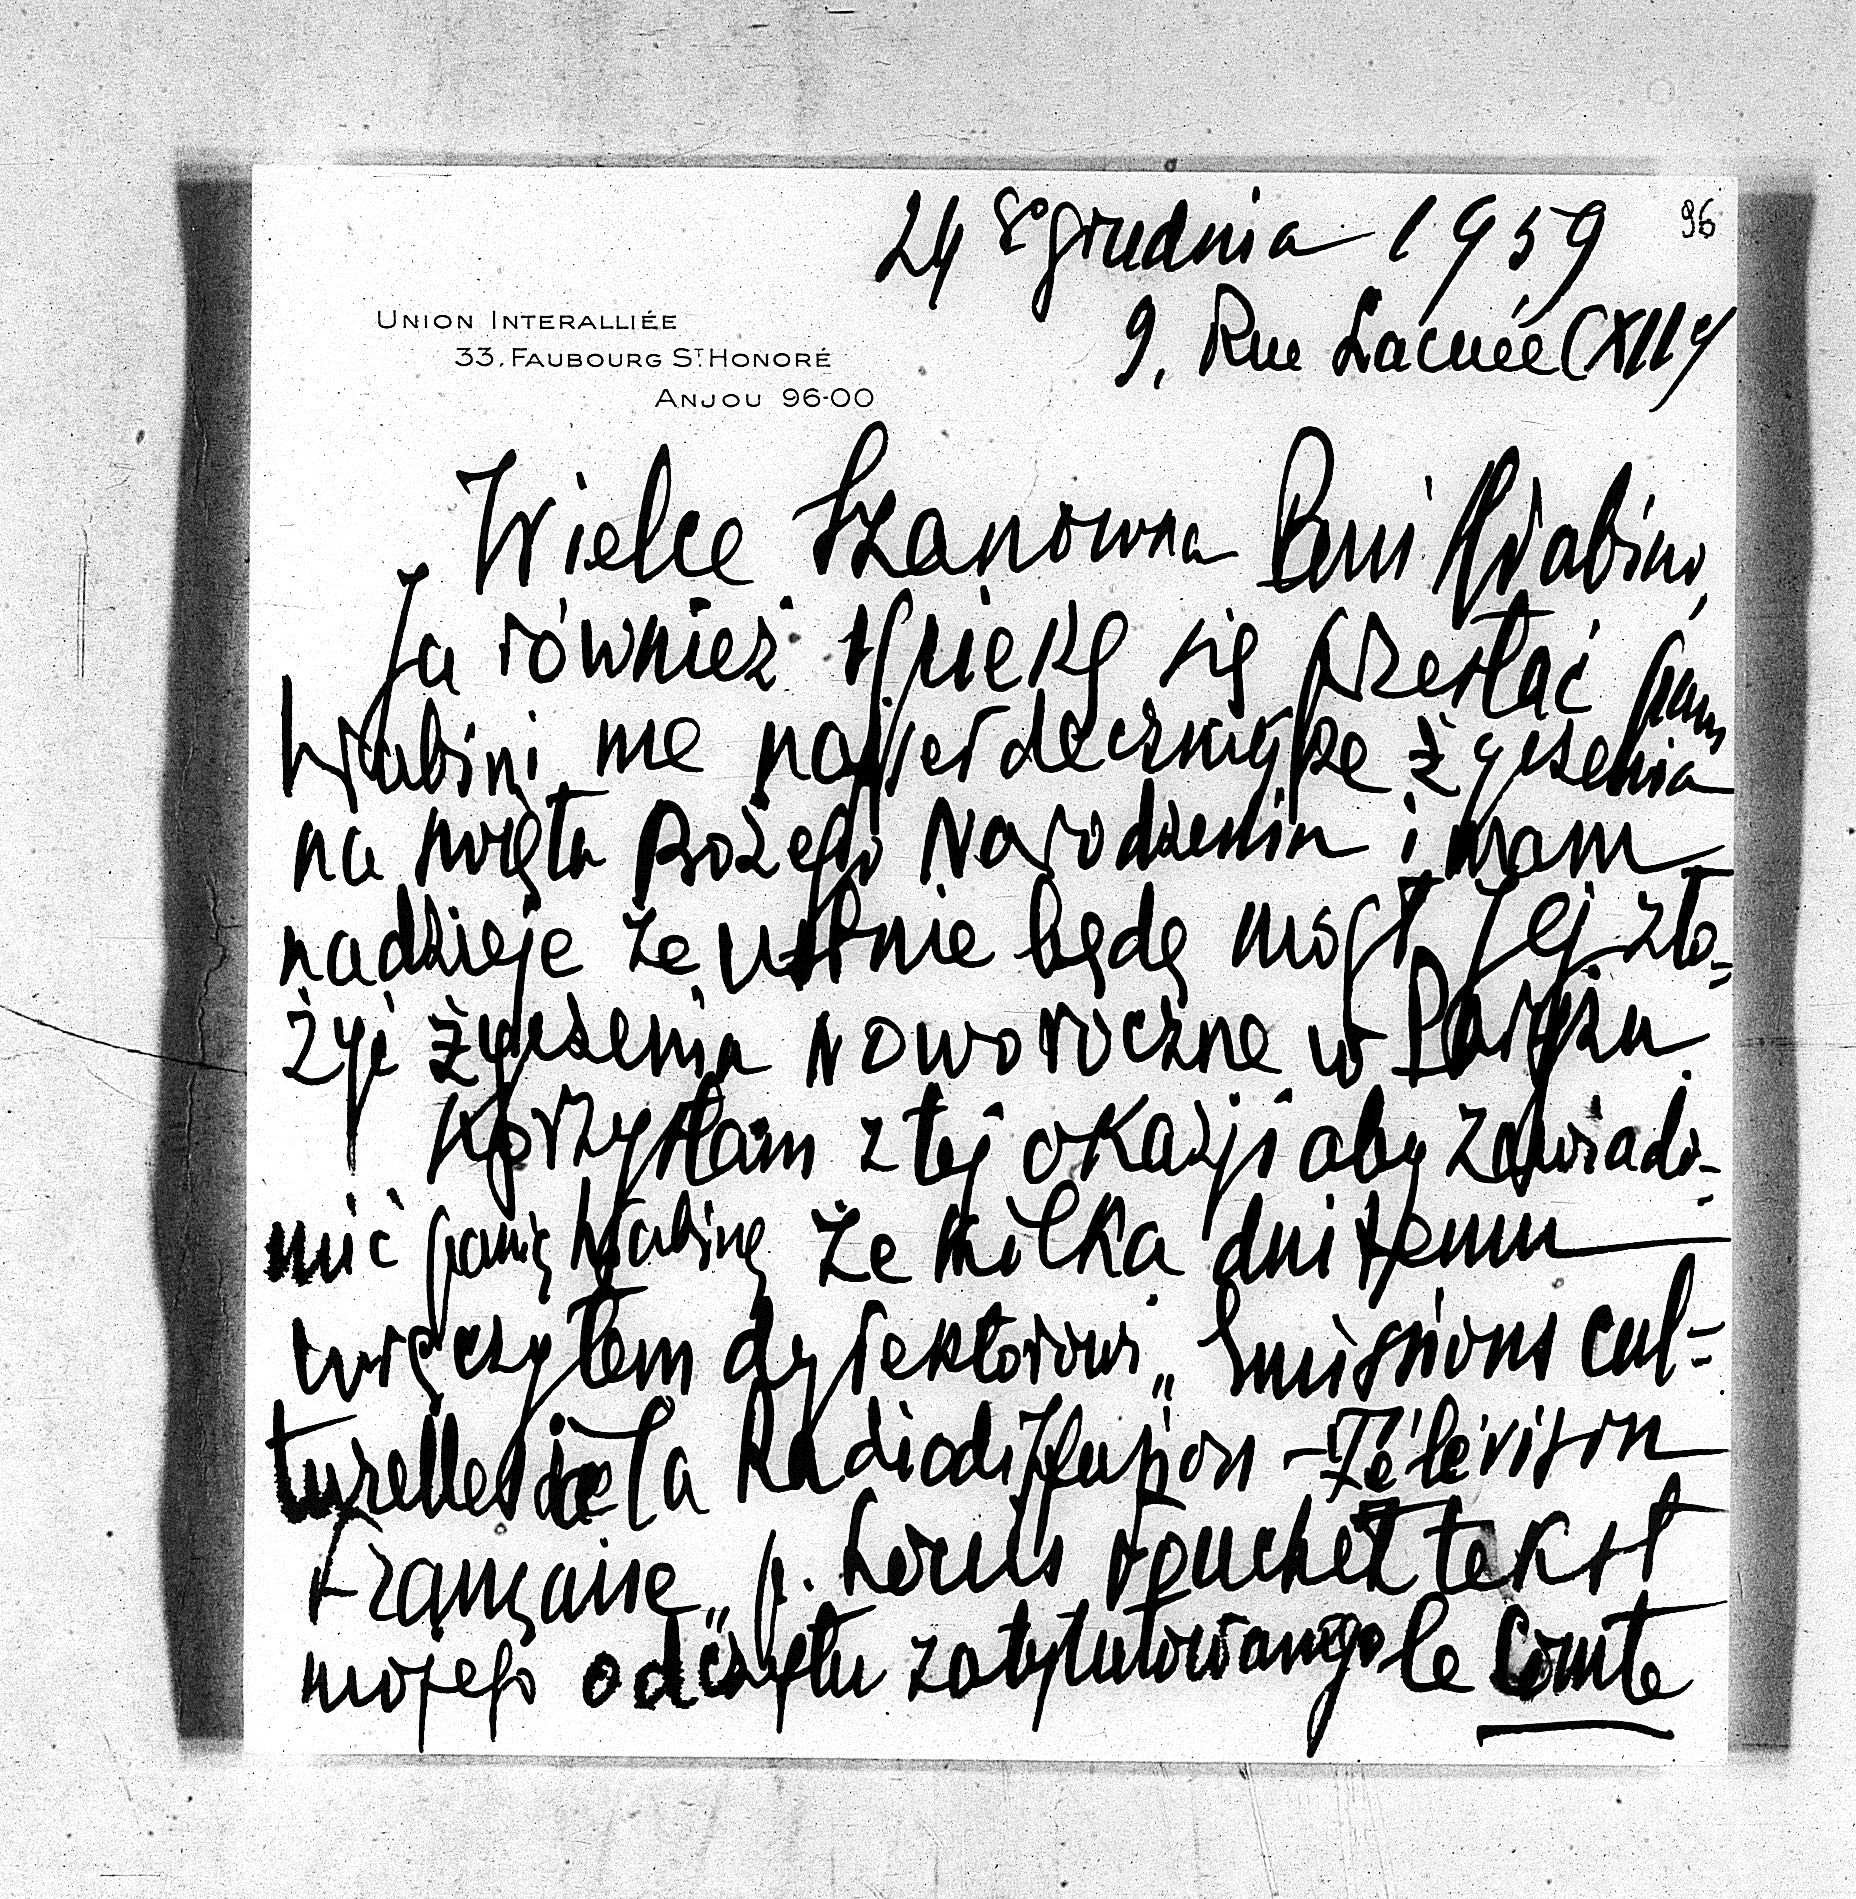 96
24 go grudnia 1959
9, Rue Lacuée (XII e)
UNION INTERALLIÉE
33, FAUBOURG ST HONORÉ
ANJOU 96-00
Wielce Szanowna Pani Hrabino,
Ja również spieszę się przesłać pani
hrabini me najserdeczniejsze życzenia
na święta Bożego Narodzenia i mam
nadzieje że ustnie będę mógł Jej zło=
żyć życzenia noworoczne w Paryżu
Korzystam z tej okazji aby zawiado-
mić panią hrabinę że kilka dni temu
wręczyłem dyrektorowi „Emissions cul-
turelles de la Radiodiffusion - Télévision
Française„ p. Louis tekst
mojego odczytu zatytułowanego le Comte